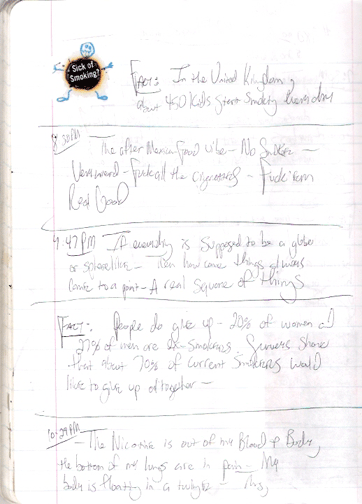 Sick of
Smoking?
FACT: In the United Kingdom,
about 450 kids start Smoking Every day
8:30PM
The after Mexican Food vibe - No Smokes -
Very weird - Fuck all the cigarettes - Fuck'em
Real Good
9:47PM If everything is supposed to be a globe
or sphere like - Then how come things always
come to a point - A real square of things
FACT: People do give up - 20% of women and
27% of men are Ex-Smokers - Surveys Show
that about 70% of current Smokers would
like to give up altogether -
10:29PM
- The Nicotine is out of my Blood & Body,
the bottom of my lungs are in pain - My
body is floating in a twilight -